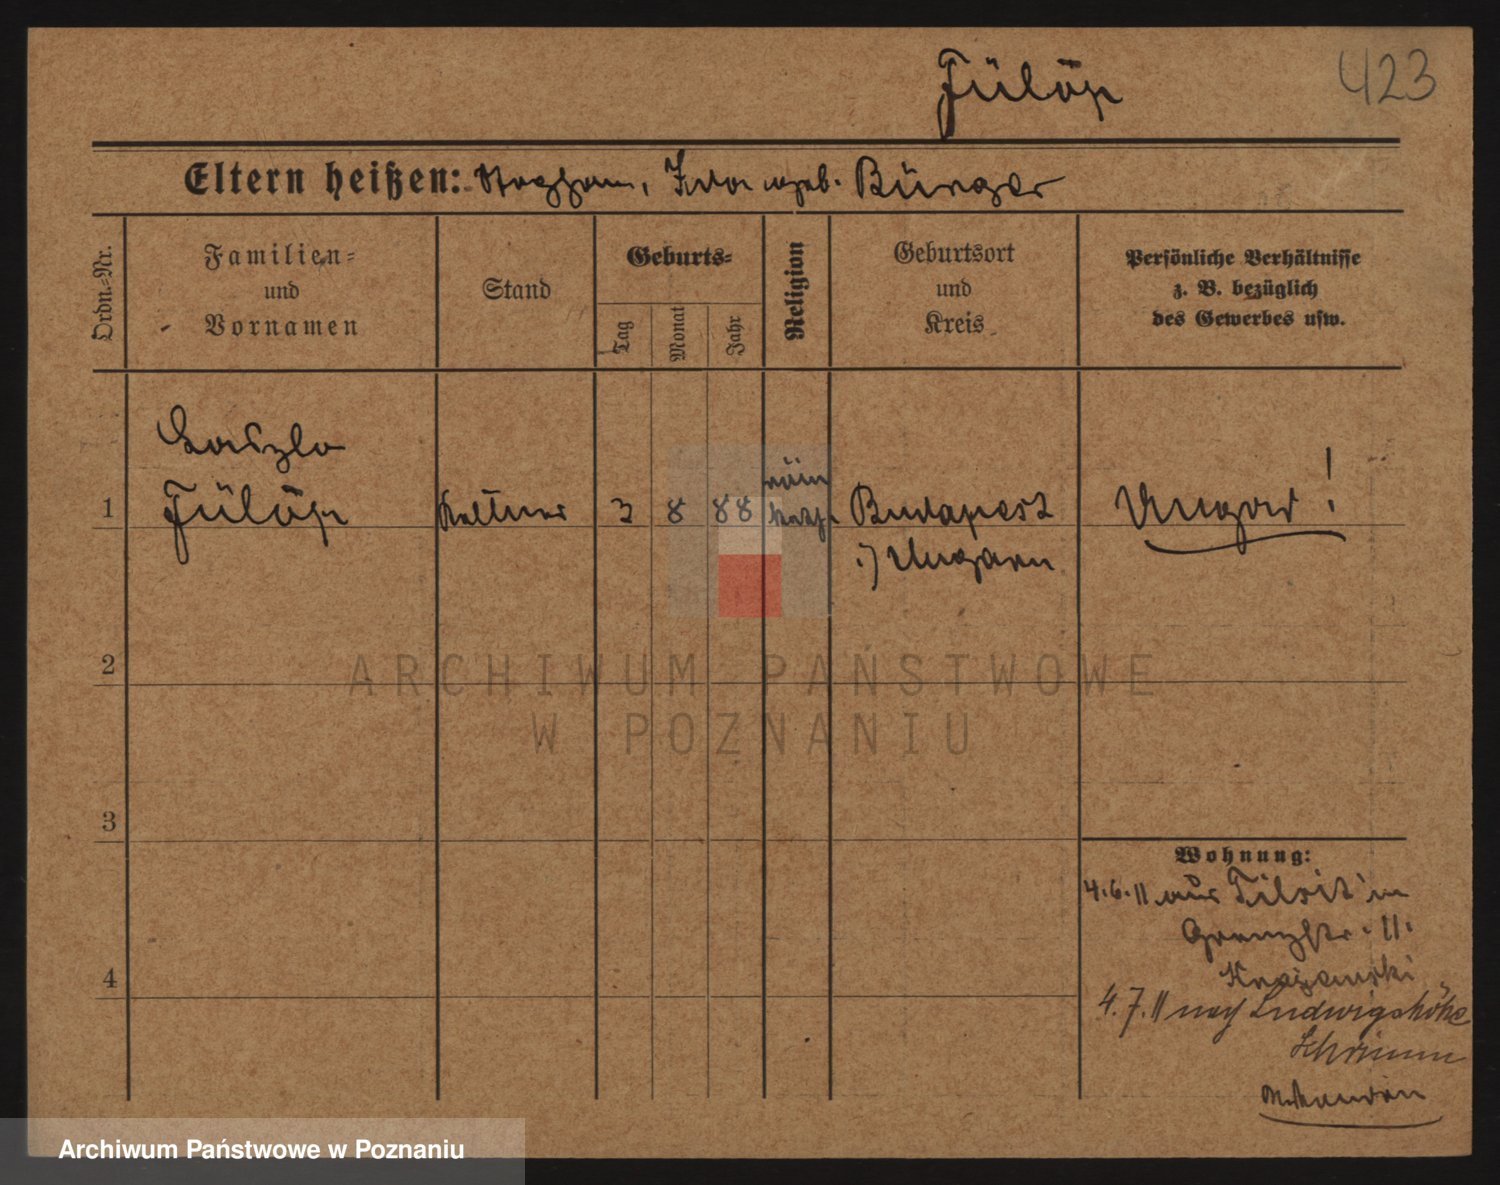 Fülöp
423
Eltern heißen: Stephan, Ilva geb. Bürger
Ordn.-Nr.
Familien-
und
Vornamen
Stand
Geburts-
Tag
Monat
Jahr
Religion
Geburtsort
und
Kreis
Persönliche Verhältnisse
z. B. bezüglich
des Gewerbes usw.
Laszlo
röm
1 Fülöp Kellner 3 8 88 kath Budapest Ungar!
i/ Ungarn
2
ARCHIWUM PAŃSTWOWE
W POZNANIU
3
Wohnung:
4.6.11 aus Tilsit in
11.
4
4.7.11 nach Ludwigshöhe
Schrimm
Archiwum Państwowe w Poznaniu